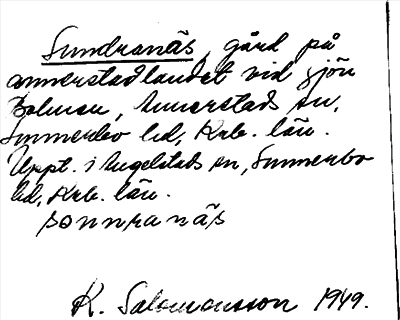 Sundranäs, gård på
annerstadlandet vid sjön
Bolmen, Annerstads sn,
Sunnerbo hd, Krb. län.
Uppt. i Angelstads sn, Sunnerbo
hd, Krb. län.
sonnranäs
K. Salomonsson 1949.